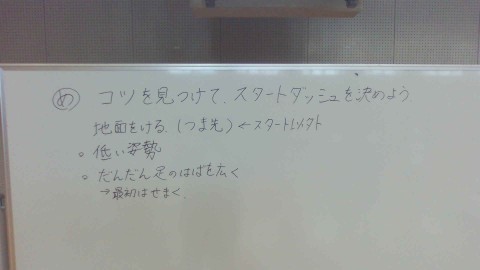 め コツを見つけて、スタートダッシュを決めよう
地面をける (つま先) ←スタート
。低い姿勢
。だんだん足のはばを広く
→最初はせまく.